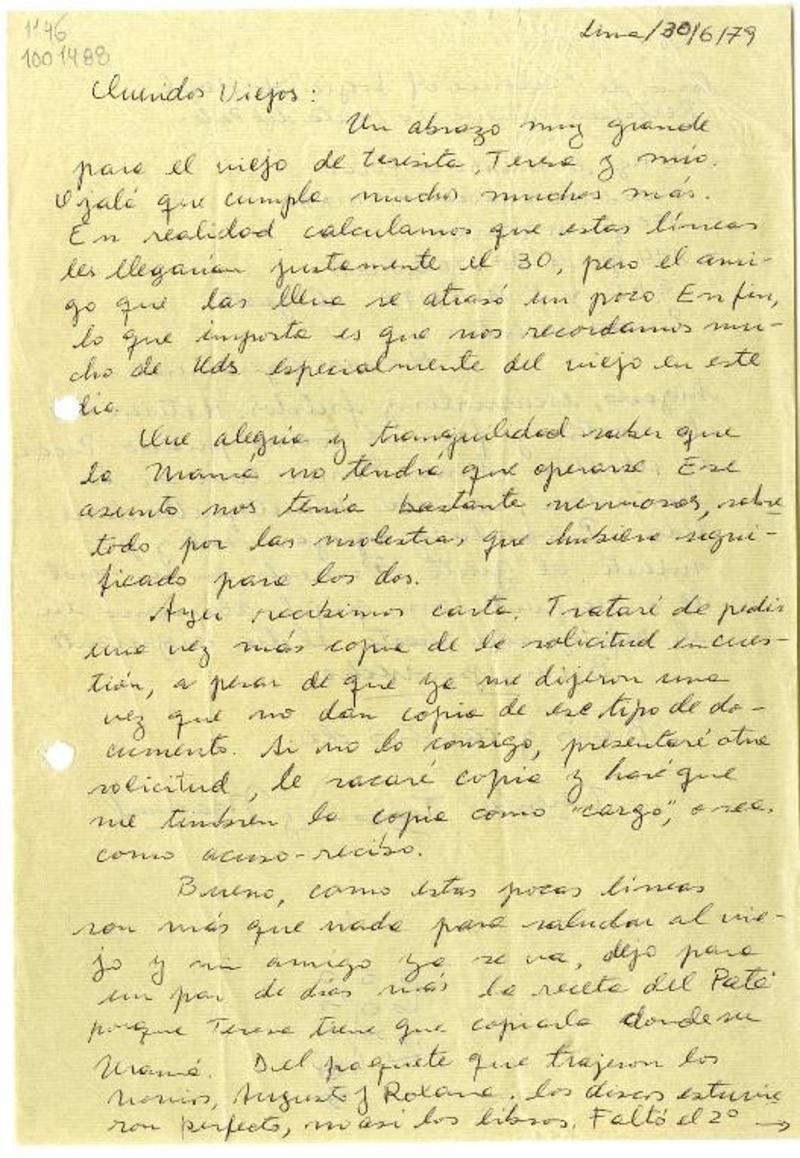 1146
1001488
Lima/30/6/79
Queridos Viejos:
Un abrazo muy grande
para el viejo de teresita, Teresa y mío.
Ojalá que cumpla muchos muchos más.
En realidad calculamos que estas líneas
les llegarían justamente el 30, pero el ami-
go que las lleva se atrasó un poco. En fin,
lo que importa es que nos recordamos mu-
cho de Uds especialmente del viejo en este
día.
Que alegría y tranquilidad saber que
la Mamá no tendrá que operarse. Ese
asunto nos tenía bastante nerviosos, sobre
todo por las molestias que hubiera signi-
ficado para los dos.
Ayer recibimos carta. Trataré de pedir
una vez más copia de la solicitud en cues-
tión, a pesar de que ya me dijeron una
vez que no dan copia de ese tipo de do-
cumento. Si no lo consigo, presentaré otra
solicitud, le sacaré copia y haré que
me timbren la copia como "cargo", o sea,
como acuso-recibo.
Bueno, como estas pocas líneas
son más que nada para saludar al vie-
jo y mi amigo ya se va, dejo para
un par de días más la receta del Paté
porque Teresa tiene que copiarla donde su
Mamá. Del paquete que trajeron los
novios, Augusto y Roxana. los discos estuvie
ron perfecto, no así los libros. Faltó el 2° →